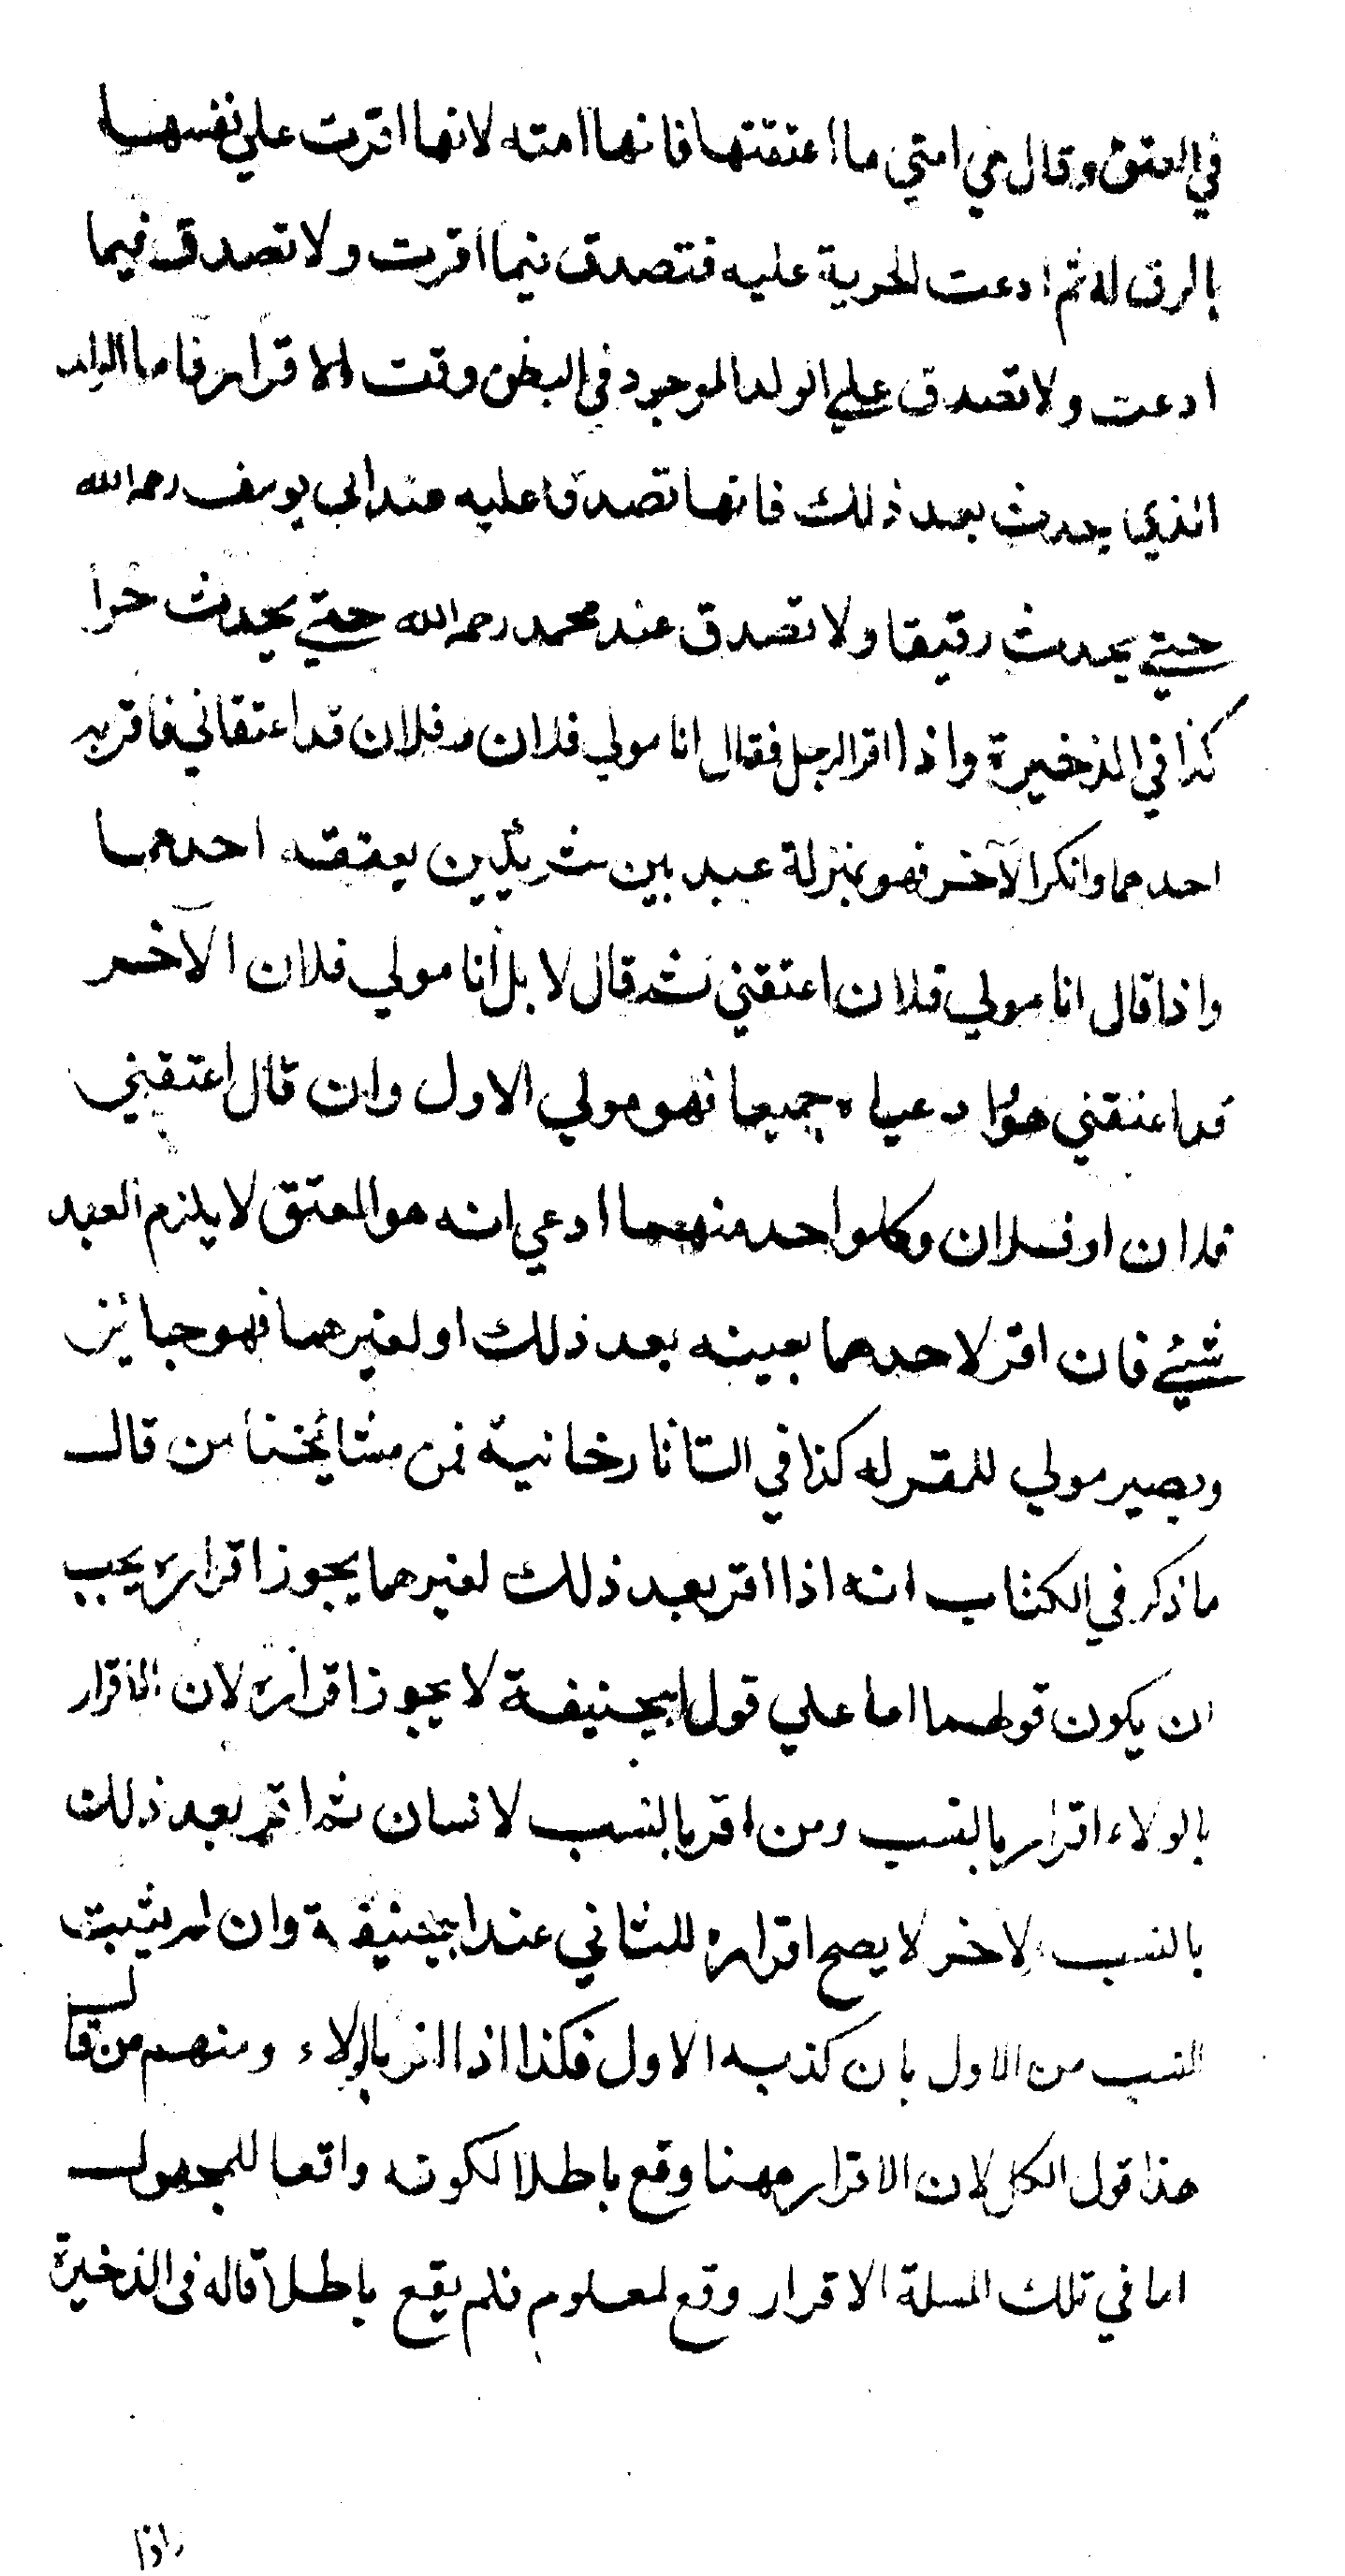 في العتق وقال هي امتي ما اعتقتها فانها امته لانها اقرت علي نفسها
بالرق له ثم ادعت الحرية عليه فتصدق فيما اقرت ولا تصدق فيما
ادعت ولا تصدق علي الولد الموجود في البطن وقت الاقرار فاما الولد
الذي يحدث بعد ذلك فانها تصدق عليه عند ابي يوسف رحمه الله
حتي يحدث رقيقا ولا تصدق عند محمد رحمه الله حتي يحدث حرا
كذا في الذخيرة واذا اقر الرجل فقال انا مولي فلان وفلان قد اعتقاني فاقر به
احدهما وانكر الآخر فهو بمنزلة عبد بين شريكين يعتقه احدهما
واذا قال انا مولي فلان اعتقني ثم قال لا بل انا مولي فلان الآخر
قد اعتقني هو وادعياه جميعا فهو مولي الاول وان قال اعتقني
فلان او فلان وكل واحد منهما ادعي انه هو المعتق لا يلزم العبد
شيئ فان اقر لاحدهما بعينه بعد ذلك او لغيرهما فهو جائز
ويصير مولي للمقر له كذا في التاتارخانية فمن مشائخنا من قال
ما ذكر في الكتاب انه اذا اقر بعد ذلك لغيرهما يجوز اقراره يجب
ان يكون قولهما اما علي قول ابيحنيفة لا يجوز اقراره لان الاقرار
بالولاء اقرار بالنسب ومن اقر بالنسب لانسان ثم اقر بعد ذلك
بالنسب لاخر لا يصح اقراره للثاني عند ابيحنيفة وان لم يثبت
النسب من الاول بان كذبه الاول فكذا اذا اقر بالولاء ومنهم من قال
هذا قول الكل لان الاقرار ههنا وقع باطلا لكونه واقعا للمجهول
اما في تلك المسلة الاقرار وقع لمعلوم فلم يقع باطلا قاله في الذخيرة
واذا